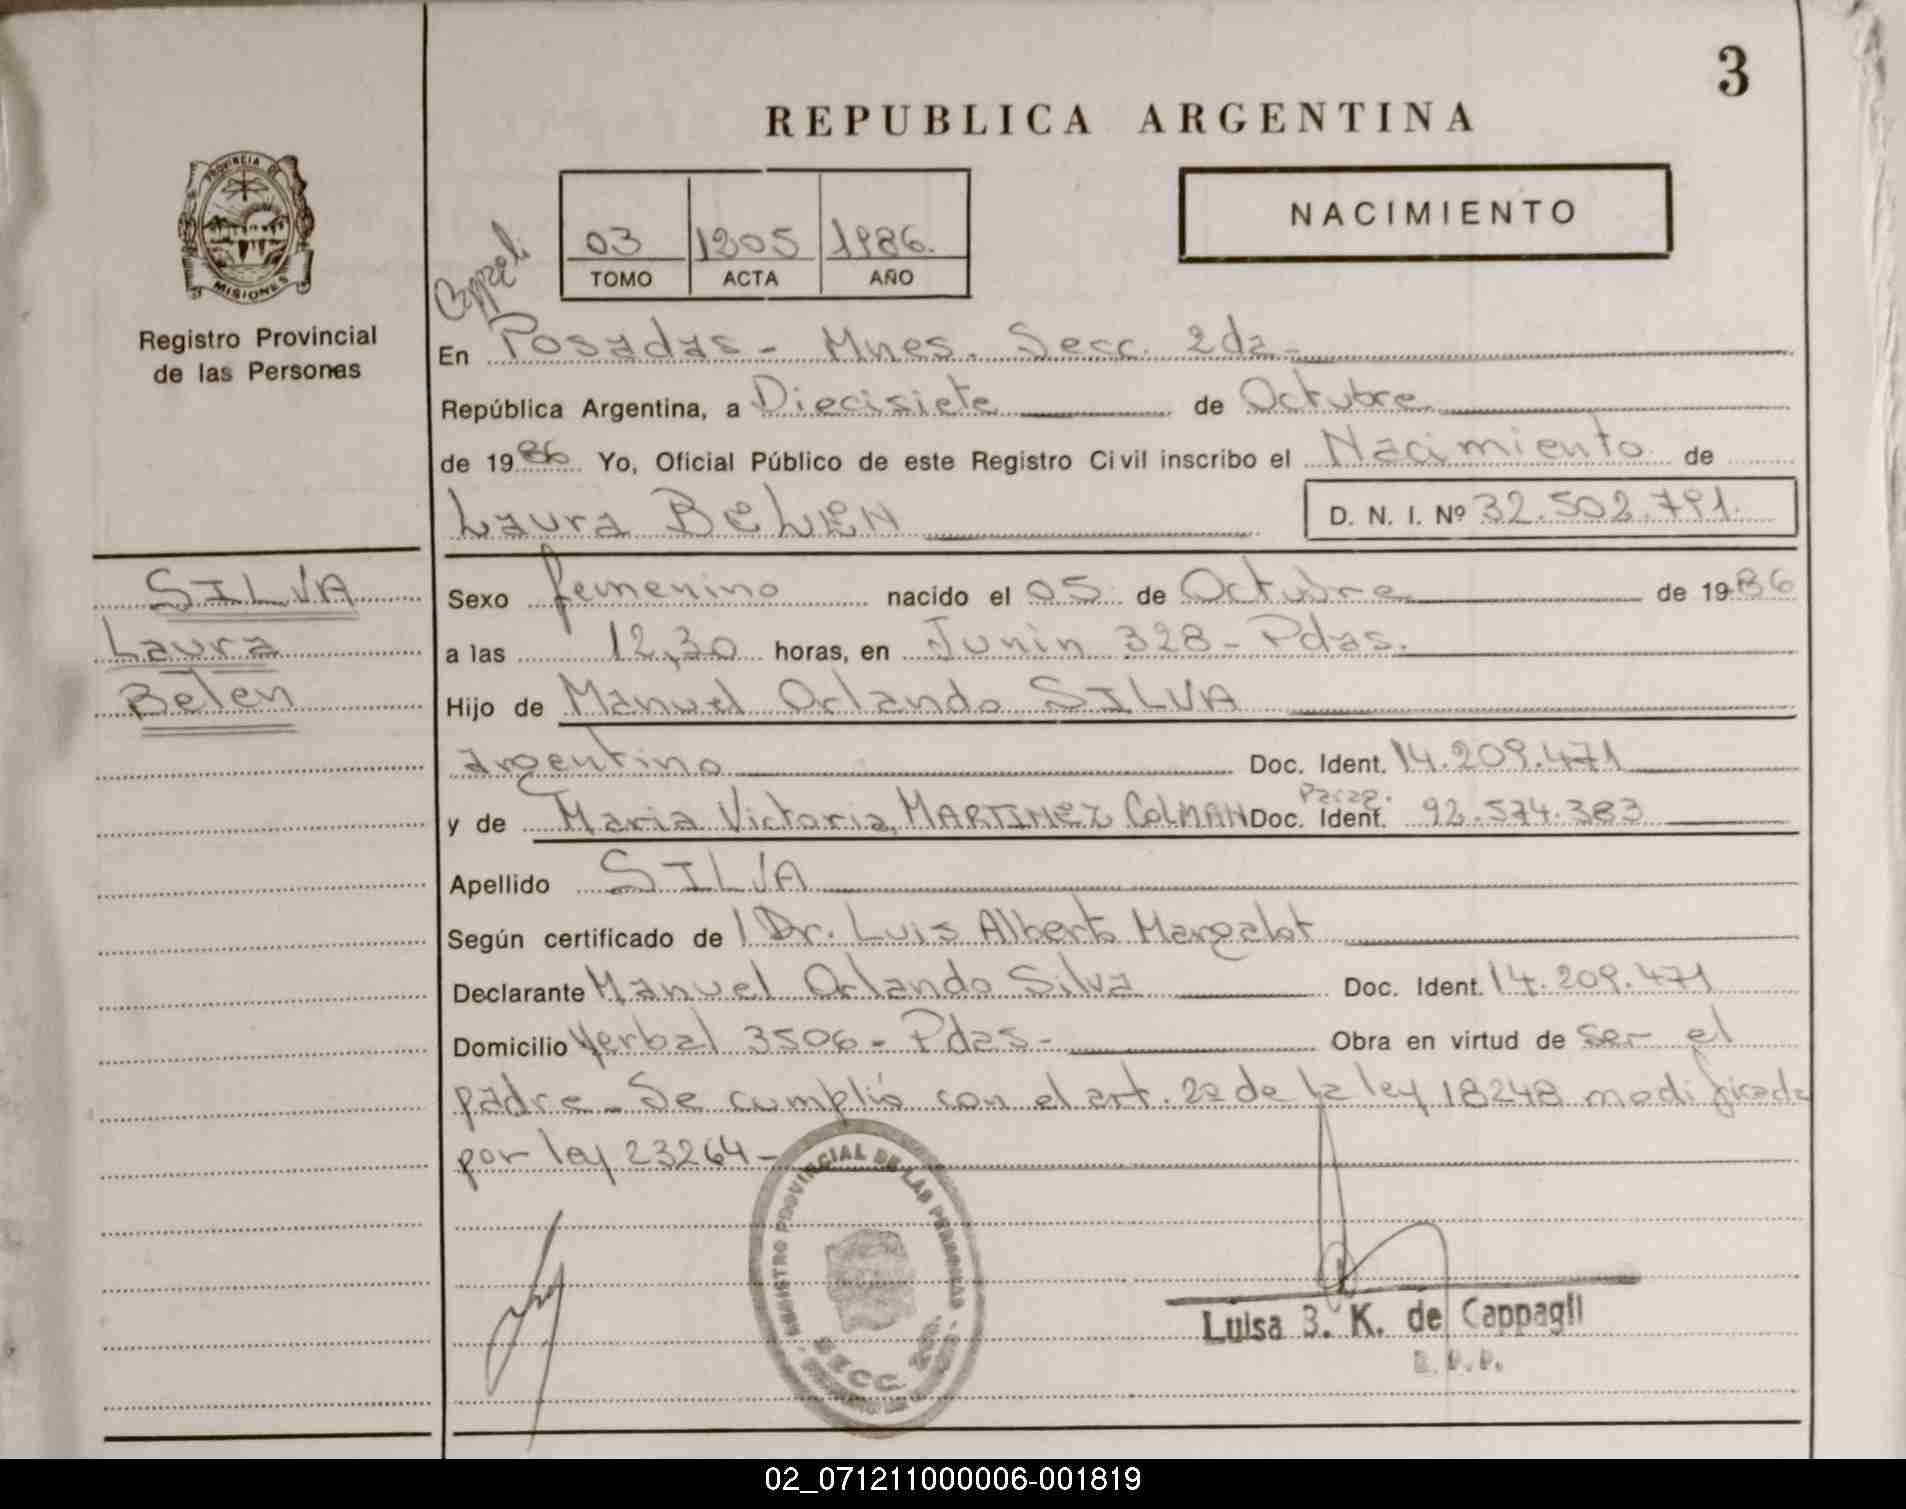 3
REPUBLICA ARGENTINA
PROVINCIA DE
MISIONES
Registro Provincial
de las Personas
NACIMIENTO
03 1205 1986.
TOMO ACTA AÑO
En Posadas - Mnes. Secc. 2da -
República Argentina, a Diecisiete de Octubre
de 1986 Yo, Oficial Público de este Registro Civil inscribo el Nacimiento de
Laura BELEN D. N. I. Nº 32.502.791.
SILVA
Laura
Belen
Sexo femenino nacido el 05 de Octubre de 1986
a las 12,30 horas, en Junin 328 - Pdas.
Hijo de Manuel Orlando SILVA
argentino Doc. Ident. 14.209.471
y de Maria Victoria MARTINEZ COLMAN Parag. Doc. Ident. 92.574.383
Apellido SILVA
Según certificado de Dr. Luis Alberto Margalot
Declarante Manuel Orlando Silva Doc. Ident. 14.209.471
Domicilio Yerbal 3506 - Pdas - Obra en virtud de ser el
padre - Se cumplió con el art. 2º de la ley 18248 modificada
por ley 23264 -
REGISTRO PROVINCIAL DE LAS PERSONAS
SECC.
Luisa B. K. de Cappagli
02_071211000006-001819